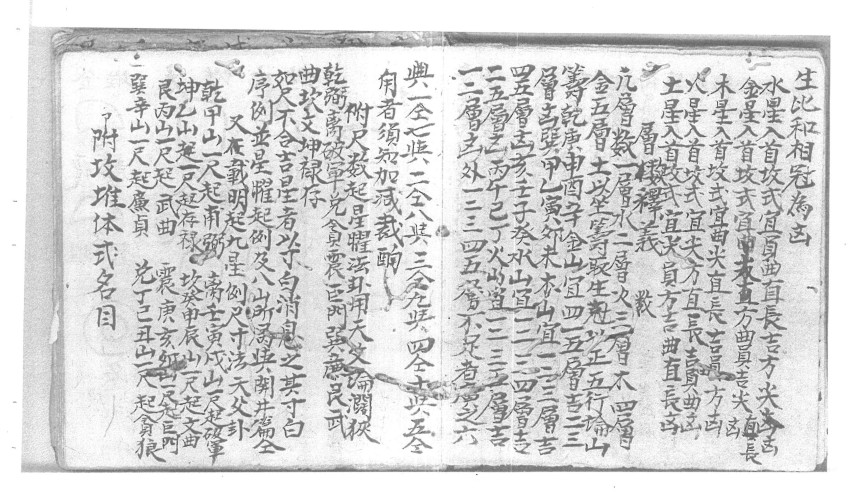 生比和相冠為凶
水星入首坟式宜員曲直長吉方尖凶
金星入首坟式宜方曲員吉尖直長凶
木星入首坟式宜曲尖直長吉員方凶
火星入首坟式宜尖方直長吉員曲凶
土星入首坟式宜尖員方吉曲直長凶
層數釋義
凢層数一層水二層火三層木四層
金五層土以坐等取生尅以正五行論山
等乾庚申酉辛金山宜四一五層吉二三
層凶巽甲乙寅卯未木山宜一三層吉
四五層凶亥壬子癸水山宜一四層吉
二五層凶丙午巳丁火山宜一二三五層吉
一三層凶外一二三四五層不足者六
與一仝七與二仝八與三仝九與四仝十與五仝
用者須知加减裁酌
附尺数起星曜法卦用天父論濶狹
乾弼離破軍兌貪震巨門巽廉艮武
曲坎文坤禄存
如尺不合吉星者以寸白消息之其寸白
序例並星曜起例及八山所属與開井篇仝
又在載明起九星例尺寸法天父卦
乾甲山一尺起甫弼 离壬寅戌山一尺起破軍
坤乙山起一尺起存禄 坎癸申辰山一尺起文曲
艮丙山一尺起武曲 震庚亥卯山一尺起巨門
巽辛山一尺起廉貞 兌丁巳丑山一尺起貪狼
附坟堆体式名目